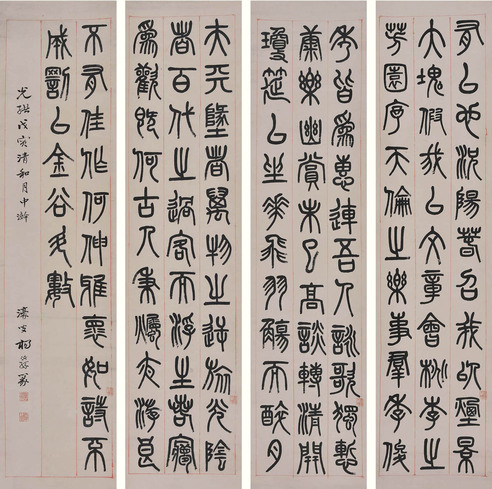 夫天墬者萬物之逆旅光陰
者百代之過客而浮生若寱
為歡幾何古人秉燭夜游良
有以也況陽春召我以煙景
大塊假我以文章會桃李之
芳園序天倫之樂事羣季俊
秀皆為惠連吾人詠歌獨慙
康樂幽賞未已高談轉清開
瓊筵以坐華飛羽觴而醉月
不有佳作何伸雅懷如詩不
成罰以金谷酒數
光緒戊寅清和月中澣
濠叟楊沂孫篆